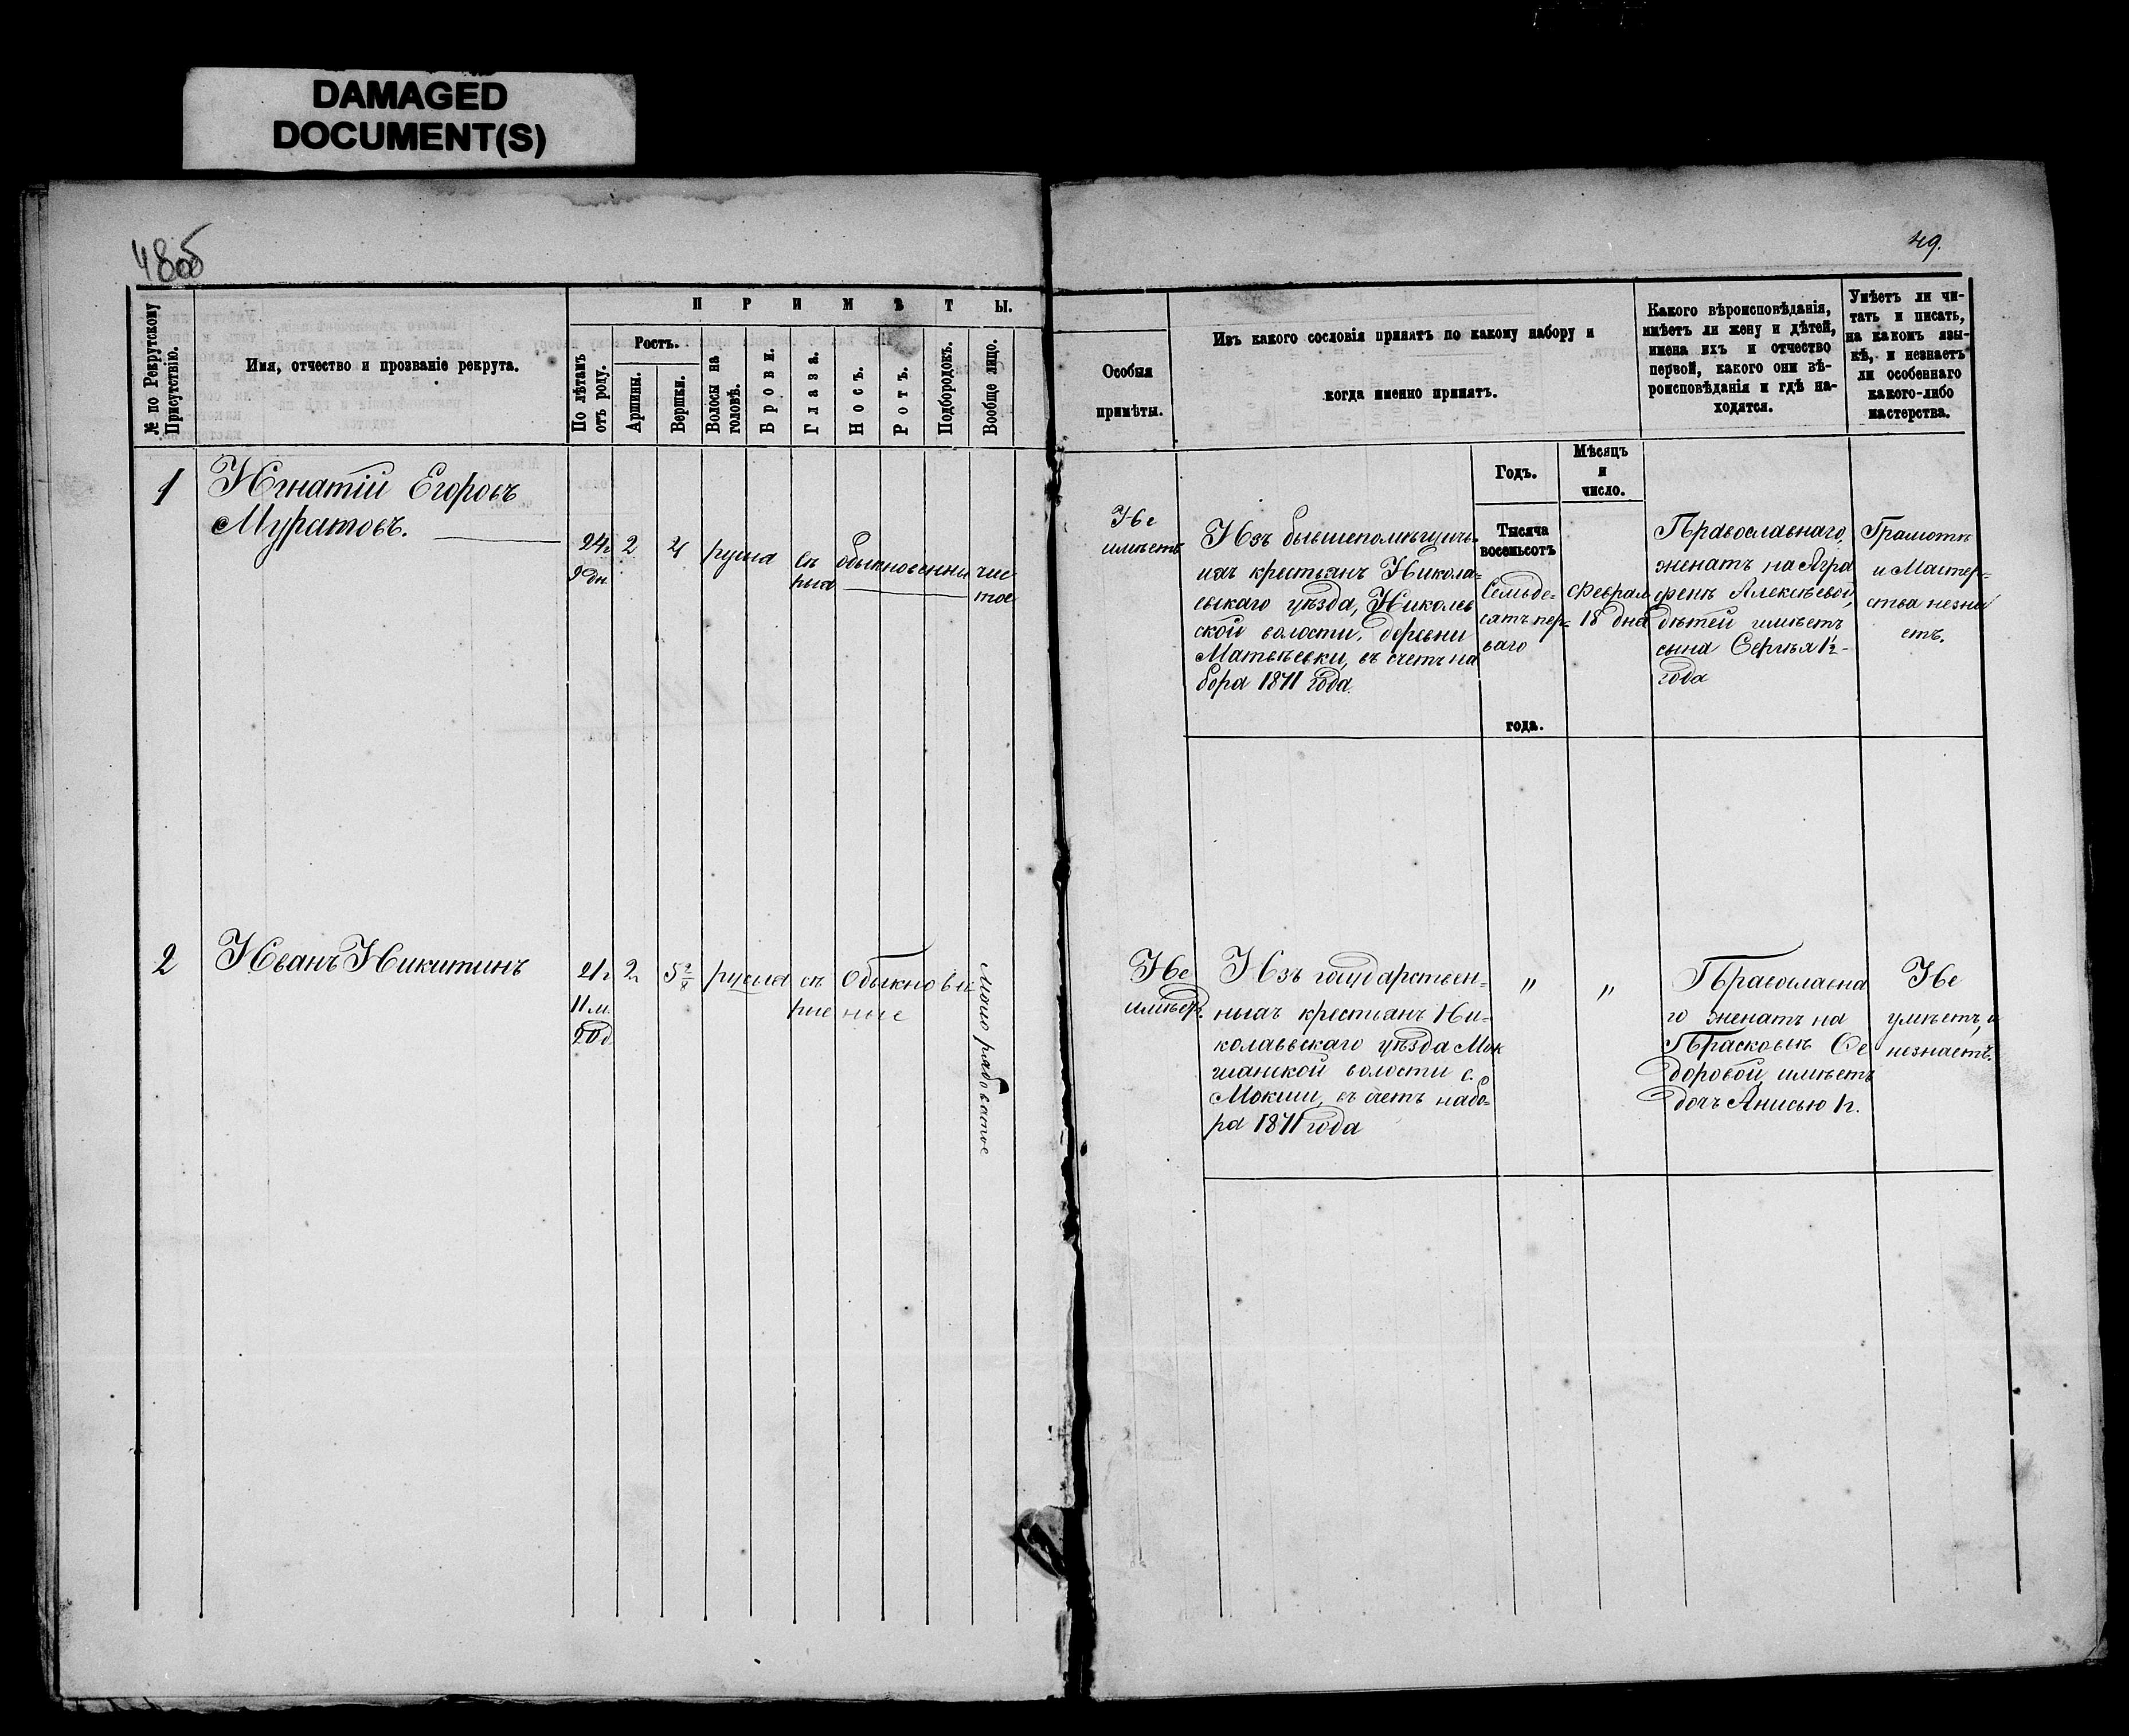 DAMAGED
DOCUMENT(S)
48об
49.
№ по Рекрутскому
Присутствію.
Имя, отчество и прозваніе рекрута.
П Р И М Ѣ Т Ы.
По лѣтамъ
отъ роду.
Ростъ.
Аршины.
Вершки.
Волосы на
головѣ.
Брови.
Глаза.
Носъ.
Ротъ.
Подбородокъ.
Вообще лицо.
Особыя
примѣты.
Изъ какого сословія принятъ по какому набору и
когда именно принятъ.
Какого вѣроисповѣданія,
имѣетъ ли жену и дѣтей,
имена ихъ и отчество
первой, какого они вѣ-
роисповѣданія и гдѣ на-
ходятся.
Умѣетъ ли чи-
тать и писать,
на какомъ язы-
кѣ, и незнаетъ
ли особеннаго
какого-либо
мастерства.
Годъ.
Мѣсяцъ
и
число.
1
Игнатій Егоровъ
Муратовъ.
24г
9 дн.
2
4
русыя
сѣ
рыя
обыкновенны
чис
тое
Не
имѣетъ
Изъ бывшепомѣщичь-
ихъ крестьянъ Никола-
евскаго уѣзда, Николев
ской волости, деревни
Матвѣевки, въ счетъ на
бора 1871 года.
Тысяча
восемьсотъ
Семьде-
сятъ пер-
ваго
года.
Феврал
18 дня
Православнаго,
женатъ на Агра
фенѣ Алексѣевой,
дѣтей имѣетъ
сына Сергѣя 1½-
года
Грамотѣ
и Мастер-
ства незна
етъ.
2
Иванъ Никитинъ
21г
11 м.
20 д
2
5 2/8
русыя
сѣ
рые
Обыкновен
ные
Мало рябоватое
Не
имѣетъ.
Изъ государствен-
ныхъ крестьянъ Ни-
колаевскаго уѣзда Мок
шанской волости с.
Мокши, въ счетъ набо-
ра 1871 года
"
"
Православна
го женатъ на
Прасковьѣ Ѳе
доровой, имѣетъ
дочь Анисью 1г.
Не
умѣетъ, и
незнаетъ.